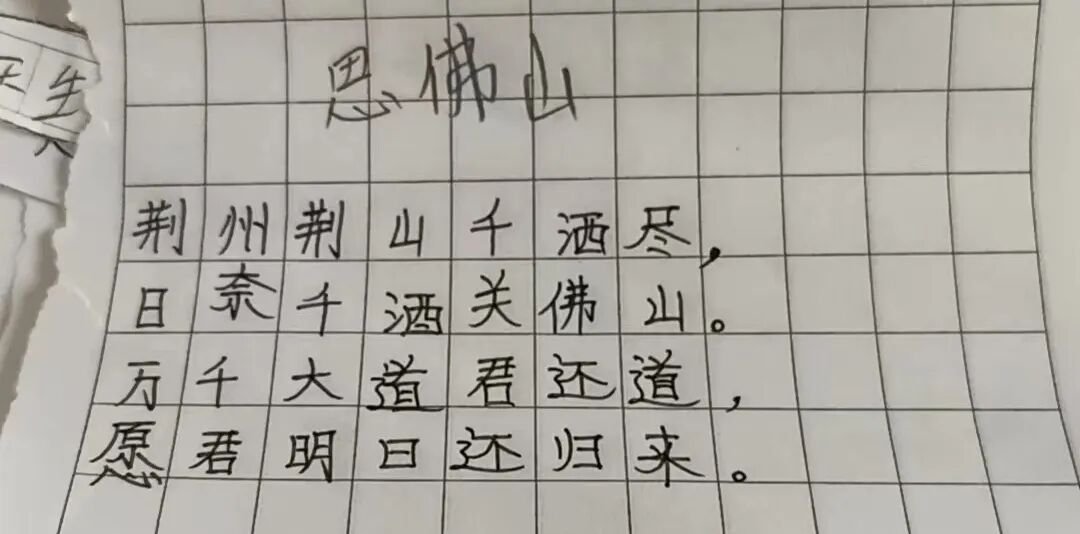 恩佛山
荆州荆山千洒尽，
日奈千酒关佛山。
万千大道君还道，
愿君明日还归来。